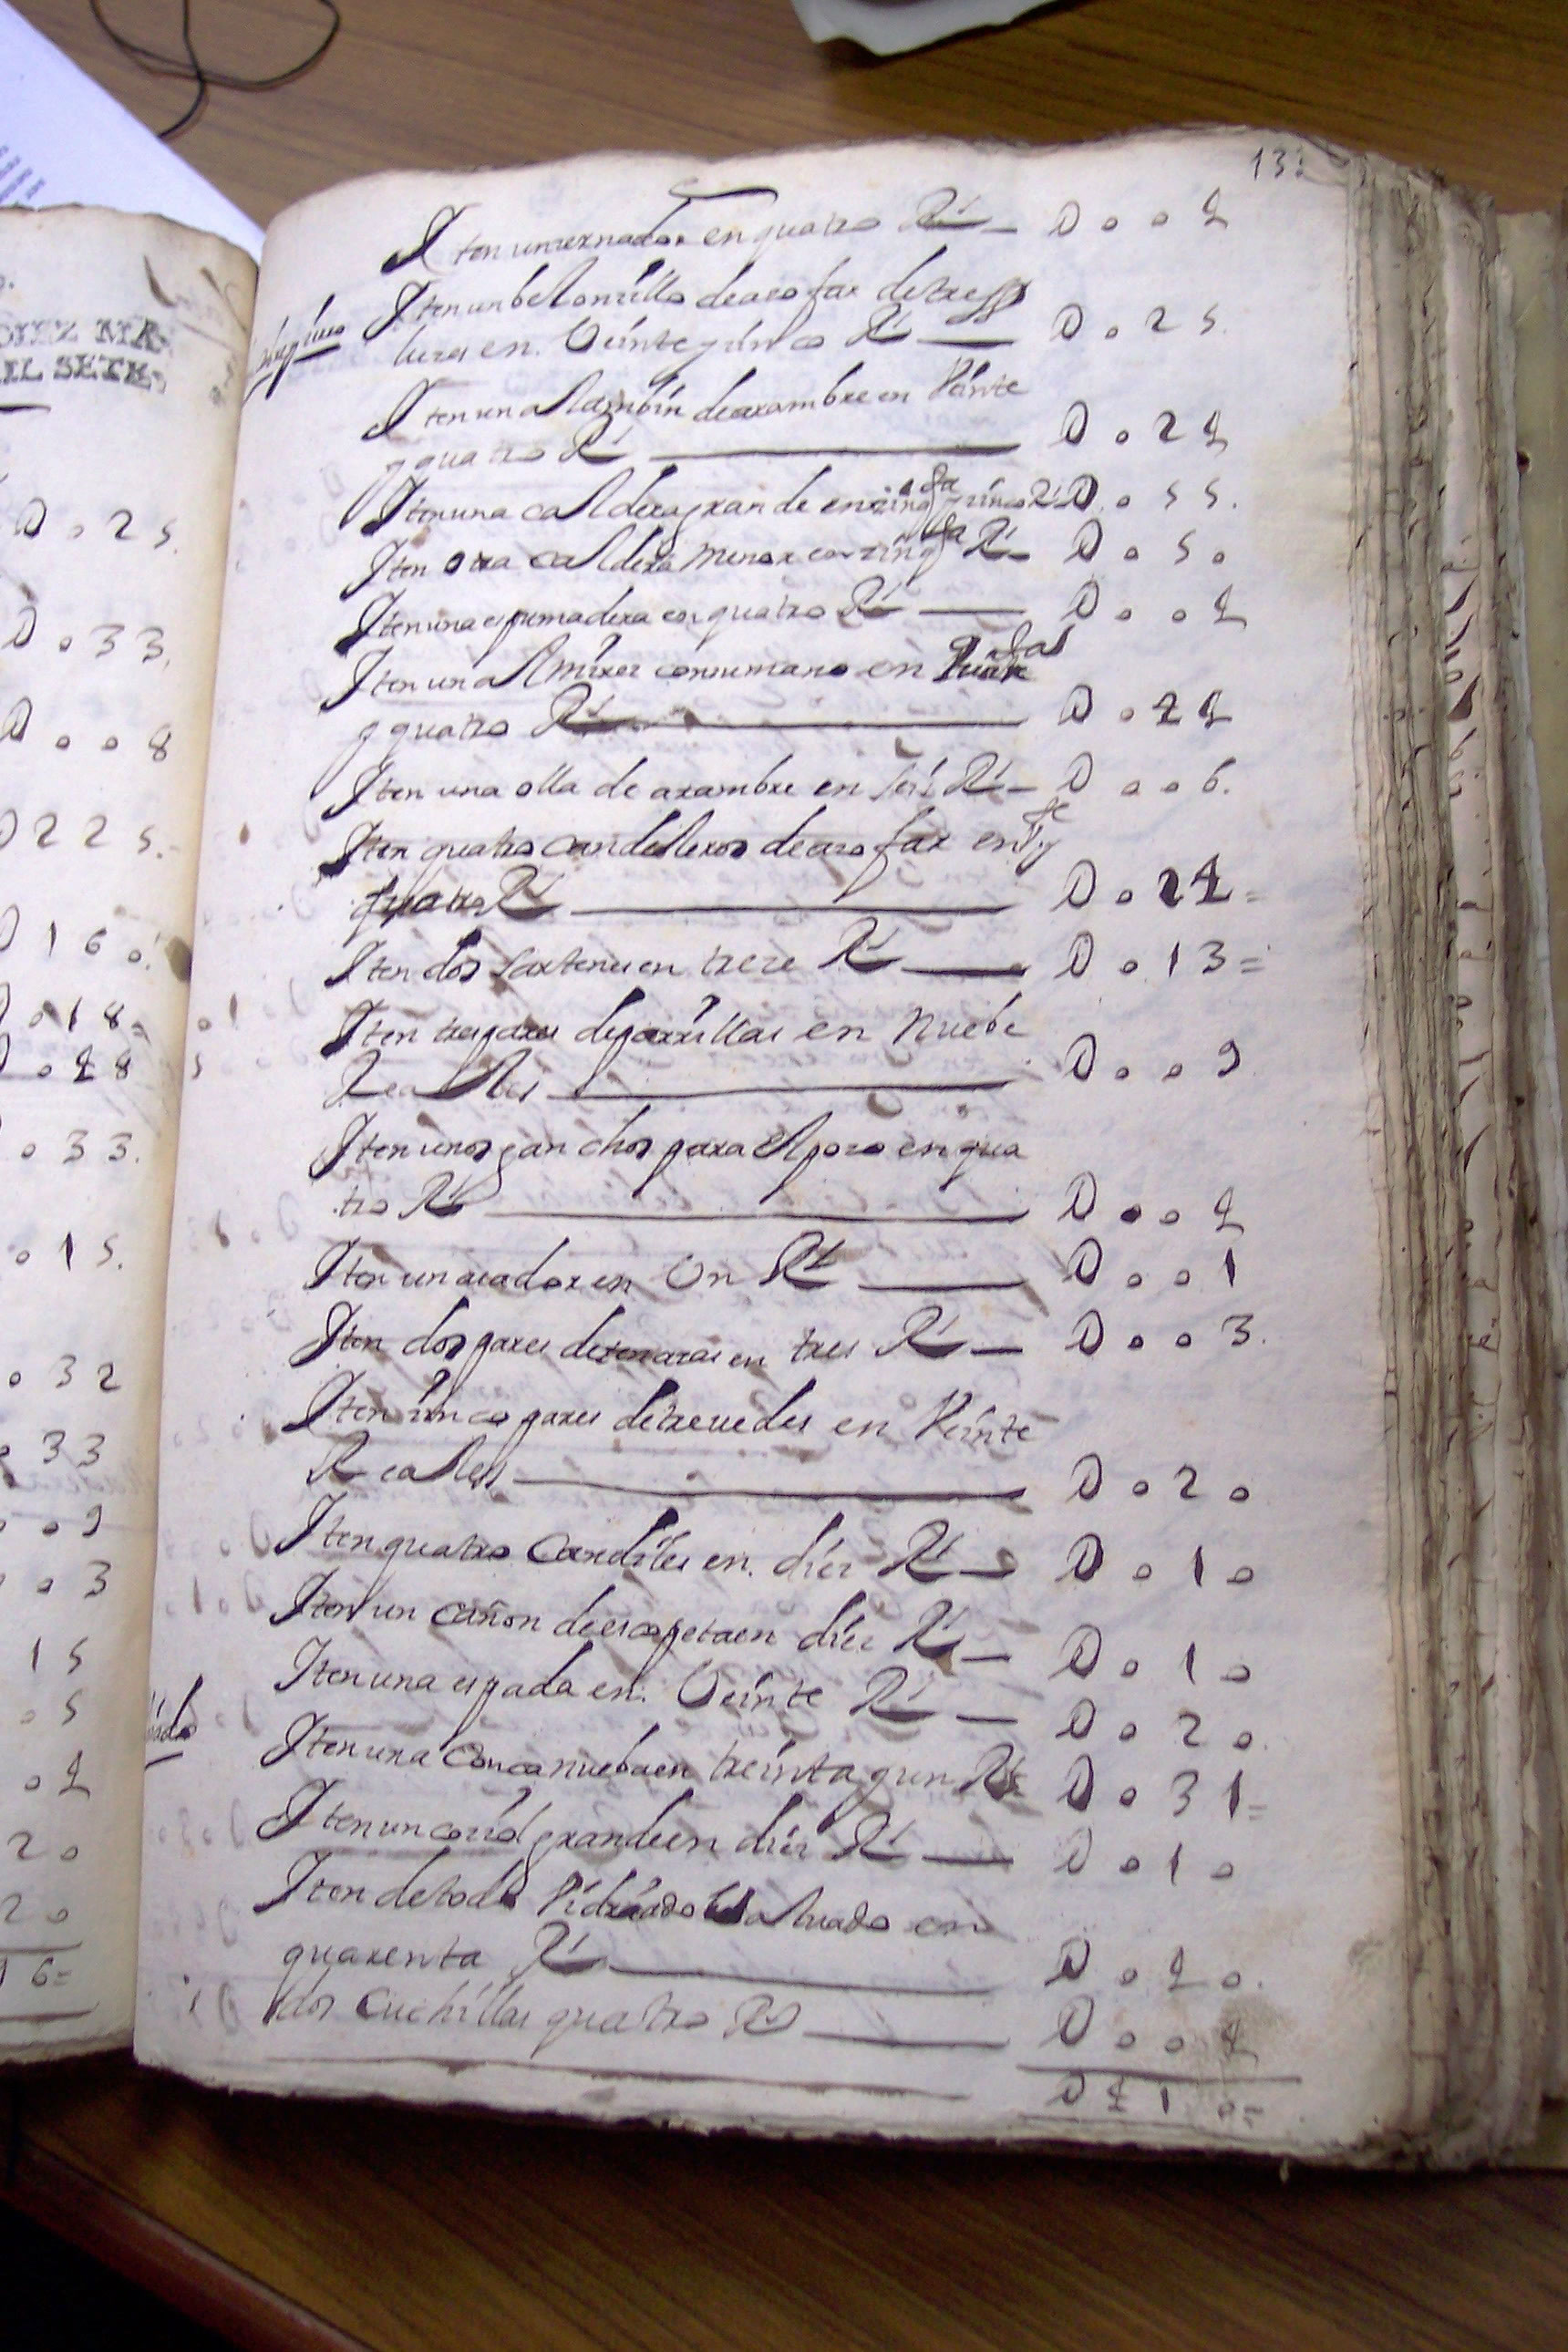 DIEZ MR
IL SETE
D o 2 5.
D o 3 3.
D o o 8
D 2 2 5.
D 1 6 o.
D o 1 8=
D o 4 8
o 3 3.
o 1 5.
o 3 2
33
o 9
o 3
1 5
o 5
o 4
2 o
2 o
1 6=
13
Iten un zernador en quatro Rs — D o o 4
Iten un belonsillo de azofar de tress
luzes en. Veinte y sinco Rs — D o 2 5.
Iten un alambin de arambre en Veinte
y quatro Rs — D o 2 4
Iten una caldera grande en zinqta y zinco Rs D o 5 5.
Iten otra caldera menor en zinqta Rs — D o 5 o
Iten una espumadera en quatro Rs — D o o 4
Iten un almirez con su mano en quarta
y quatro Rs — D o 4 4
Iten una olla de arambre en seis Rs — D o o 6.
Iten quatro candeleros de azofar en Vte y
quatro Rs — D o 2 4 =
Iten dos sartenes en treze Rs — D o 1 3 =
Iten tres pares de parrillas en nuebe
Reales — D o o 9
Iten unos ganchos para el pozo en qua
tro Rs — D o o 4
Iten un asador en Un Rl — D o o 1
Iten dos pares de tenazas en tres Rs — D o o 3.
Iten zinco pares de treuedes en Veinte
Reales — D o 2 o
Iten quatro Candiles en. diez Rs — D o 1 o
Iten un cañon de escopeta en diez Rs — D o 1 o
Iten una espada en. Veinte Rs — D o 2 o.
Iten una Conca nueba en treinta y un Rs D o 3 1 =
Iten un cozio grande en diez Rs — D o 1 o
Iten de todo Vidriado baluado en
quarenta Rs — D o 4 o.
dos Cuchillas quatro Rs — D o o 4
D 4 1 o =